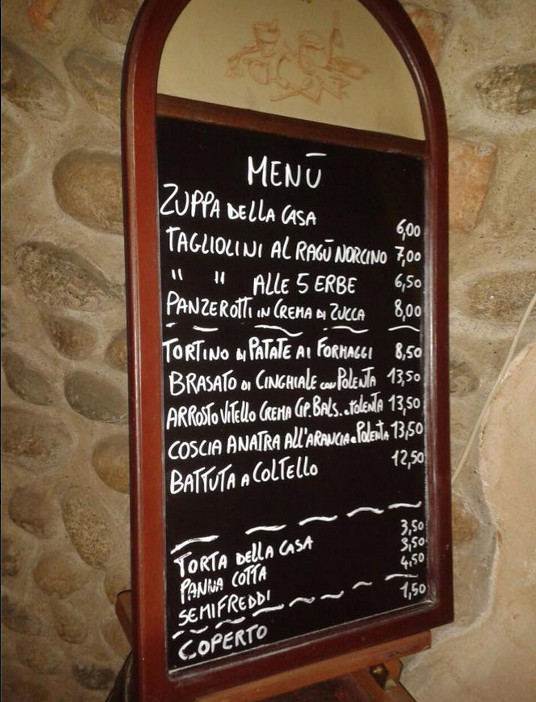 MENÙ
ZUPPA DELLA CASA 6,00
TAGLIOLINI AL RAGÙ NORCINO 7,00
" " ALLE 5 ERBE 6,50
PANZEROTTI IN CREMA DI ZUCCA 8,00
TORTINO DI PATATE AI FORMAGGI 8,50
BRASATO DI CINGHIALE CON POLENTA 13,50
ARROSTO VITELLO CREMA CIP. BALS. e POLENTA 13,50
COSCIA ANATRA ALL'ARANCIA e POLENTA 13,50
BATTUTA A COLTELLO 12,50
TORTA DELLA CASA 3,50
PANNA COTTA 3,50
SEMIFREDDI 4,50
COPERTO 1,50